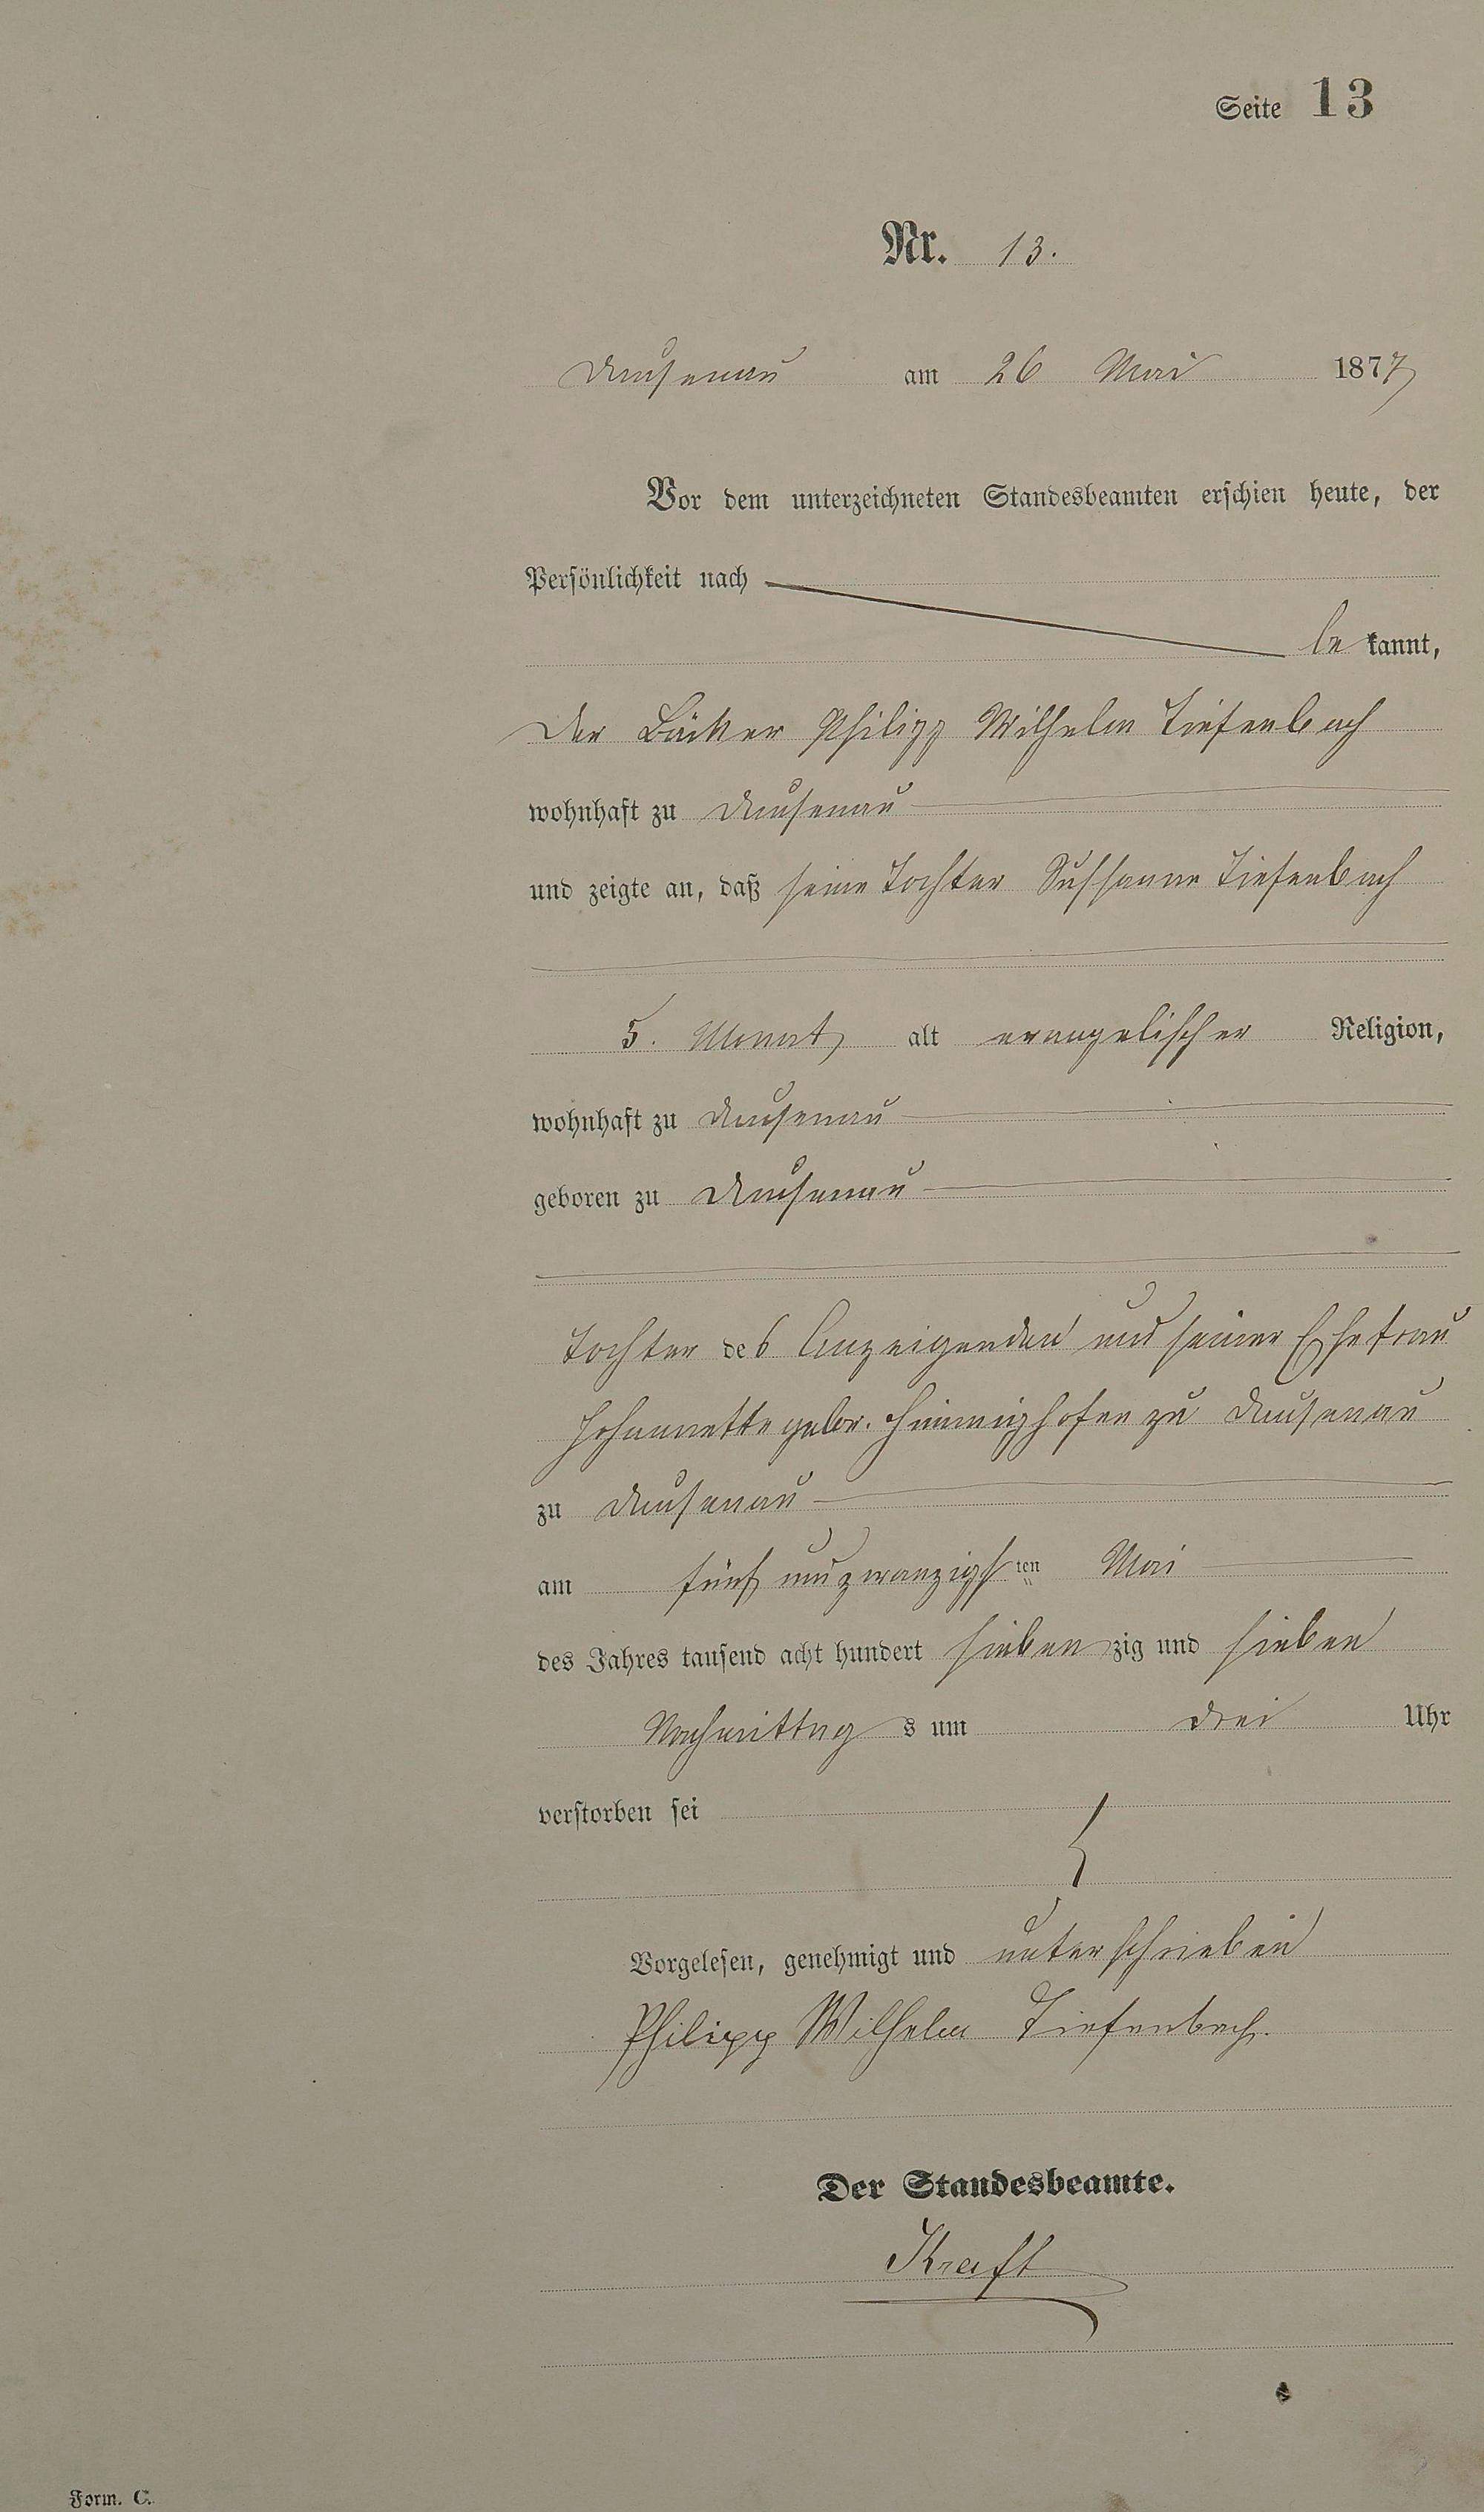 Seite 13
Nr. 13.
Dausenau am 26 Mai 1877
Vor dem unterzeichneten Standesbeamten erschien heute, der
Persönlichkeit nach
be kannt,
Der Bäcker Philipp Wilhelm Tiefenbach
wohnhaft zu Dausenau
und zeigte an, daß seine Tochter Sussanne Tiefenbach
5. Monat alt evangelischer Religion,
wohnhaft zu Dausenau
geboren zu Dausenau
Tochter des Anzeigenden und seiner Ehefrau
Johannette gebor. Himmighofen zu Dausenau
zu Dausenau
am fünf und zwanzigsten Mai
des Jahres tausend acht hundert siebenzig und sieben
Nachmittags um drei Uhr
verstorben sei
Vorgelesen, genehmigt und unterschrieben
Philipp Wilhelm Tiefenbach.
Der Standesbeamte.
Kraft
Form. C.